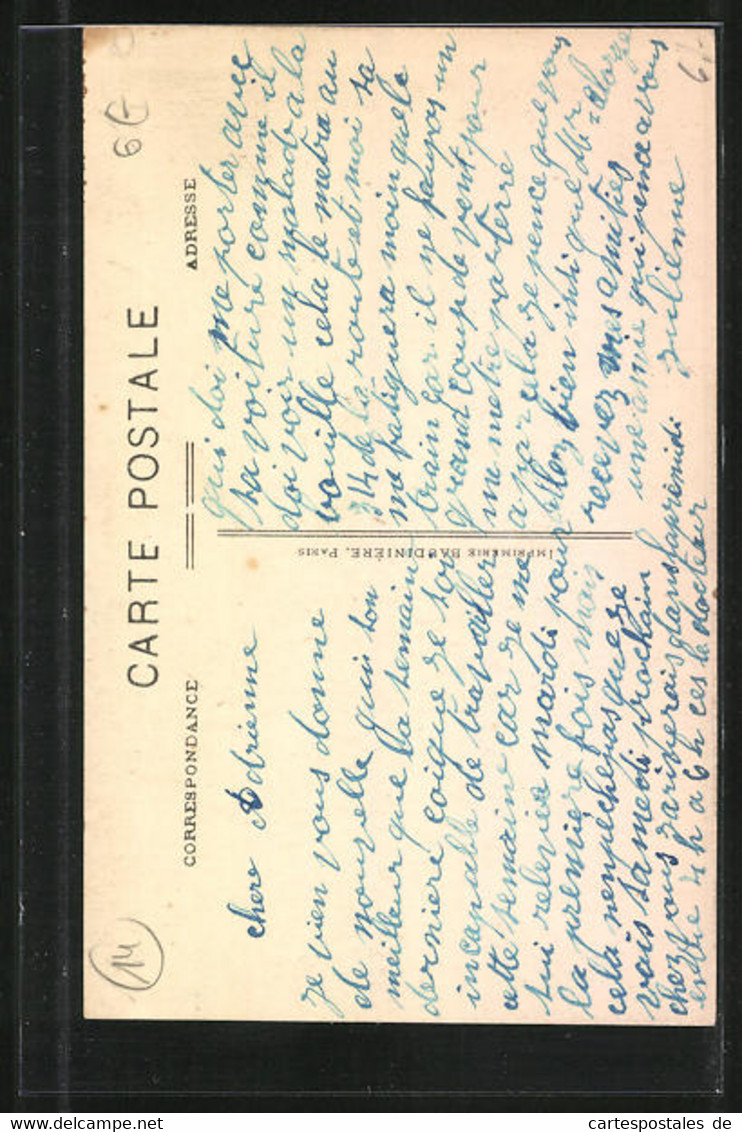 CARTE POSTALE
CORRESPONDANCE
ADRESSE
chere Adrienne
je vien vous donne
de nouvelle qui son
meilleur que la semain
derniere coique je soi
incapable de travailler
cette semaine car je me
sui relevée mardi pour
la premiere fois mais
cela nenpeche pas que je
vais samedi prochain
chez vous j'ariverais dans l'aprèmidi
entre 4 h a 6 h ces le docteur
qui doi me porter avec
sa voiture comme il
doi voir un malade a la
vouille cela le metra au
3/4 de la route et moi sa
me fatiguera moin que le
train car il ne fau pas un
grand coup de vent pour
me metre par terre
a par cela je pence que vous
allez bien insi que dhr
recevez mes amities
une amie qui pence a vous
Julienne
IMPRIMERIE BAUDINIÈRE, PARIS
14
6E
6,-
cartespostales.de